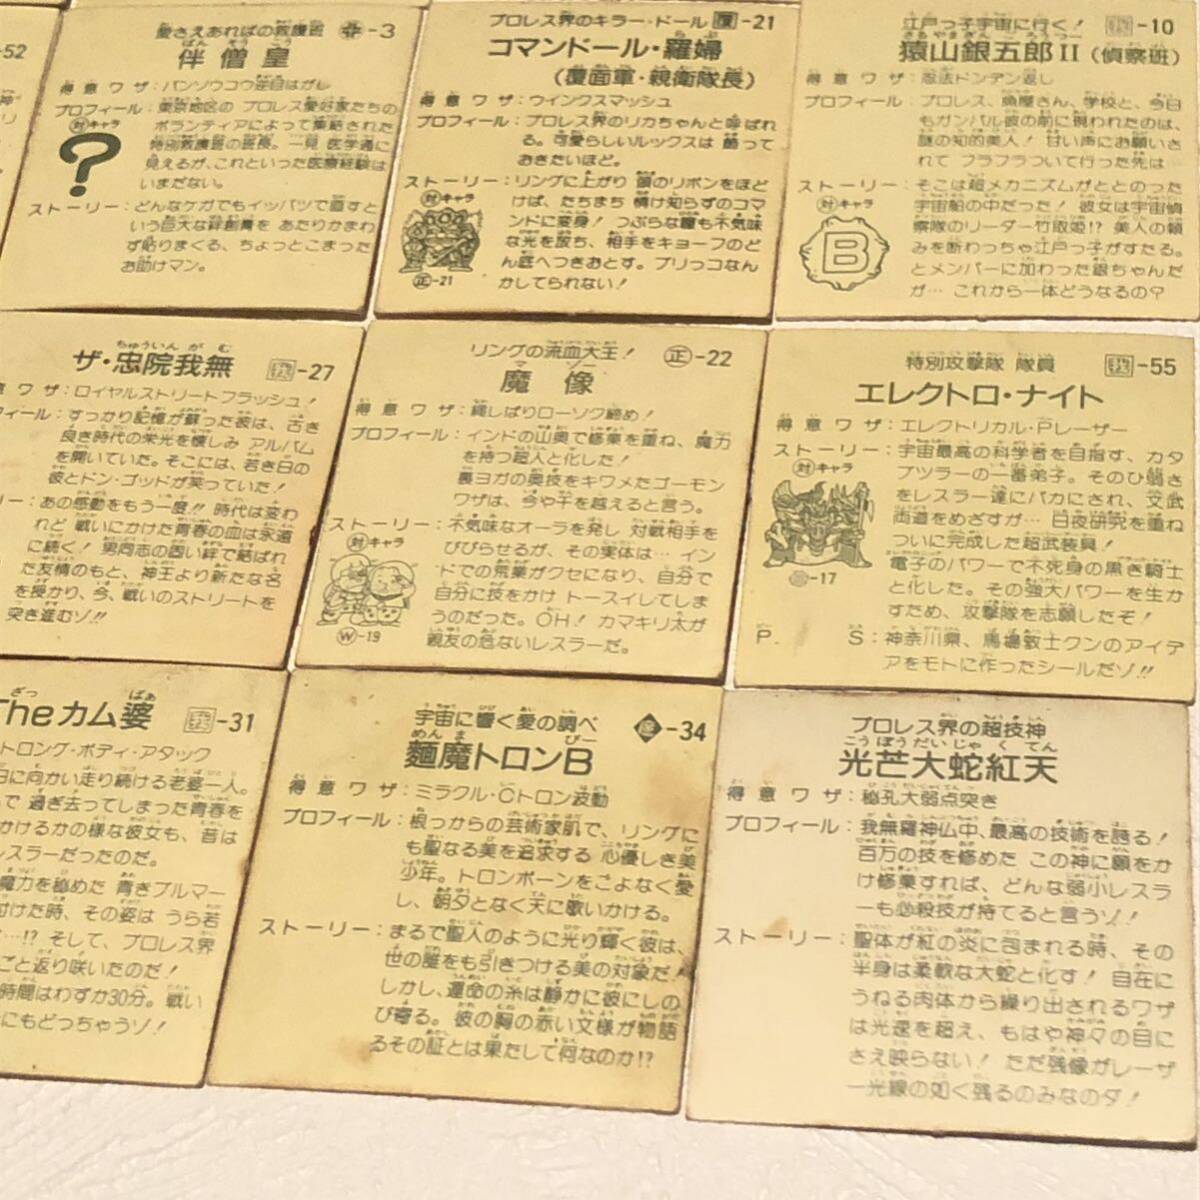 -52
愛さえあればの救護班
-3
ばん そう こう
伴僧皇
得意ワザ：バンソウコウ逆目はがし
プロフィール：東京地区の プロレス愛好家たちの
ボランティアによって集結された
特別救護班の班長。一見 医学通に
見えるが、これといった医療経験は
いまだない。
対キャラ
?
ストーリー：どんなケガでもイッパツで直すと
いう巨大な絆創膏を あたりかまわ
ず貼りまくる、ちょっとこまった
お助けマン。
プロレス界のキラー・ドール
-21
コマンドール・羅婦
(覆面軍・親衛隊長)
得意ワザ：ウインクスマッシュ
プロフィール：プロレス界のリカちゃんと呼ばれ
る。可愛らしいルックスは 飾って
おきたいほど。
ストーリー：リングに上がり 頭のリボンをほど
けば、たちまち 情け知らずのコマ
ンドに変身! つぶらな瞳も不気味
な光を放ち、相手をキョーフのど
ん底へつきおとす。ブリっコなん
かしてられない!
対キャラ
正-21
江戸っ子宇宙に行く!
我-10
さる やま ぎん ご ろう ツー
猿山銀五郎II(偵察班)
得意ワザ：忍法ドンデン返し
プロフィール：プロレス、魚屋さん、学校と、今日
もガンバル彼の前に現われたのは、
謎の知的美人! 甘い声にお願いさ
れて フラフラついて行った先は…
ストーリー：そこは超メカニズムがととのった
宇宙船の中だった! 彼女は宇宙偵
察隊のリーダー竹取姫!? 美人の頼
みを断わっちゃ江戸っ子がすたる。
とメンバーに加わった銀ちゃんだ
が… これから一体どうなるの?
対キャラ
B
ちゅういん が む
ザ・忠院我無
我-27
意ワザ：ロイヤルストリートフラッシュ!
フィール：すっかり記憶が蘇った彼は、古き
良き時代の栄光を懐しみ アルバム
を開いていた。そこには、若き日の
彼とドン・ゴッドが笑っていた!
リー：あの感動をもう一度!! 時代は変わ
れど 戦いにかけた青春の血は永遠
に続く! 男同志の固い絆で結ばれ
た友情のもと、神王より新たな名
を授かり、今、戦いのストリートを
突き進むゾ!!
リングの流血大王!
正-22
マ ゾー
魔像
得意ワザ：縄しばりローソク締め!
プロフィール：インドの山奥で修業を重ね、魔力
を持つ超人と化した!
裏ヨガの奥技をキワメたゴーモン
ワザは、今や千を越えると言う。
ストーリー：不気味なオーラを発し 対戦相手を
びびらせるが、その実体は… イン
ドでの荒業がクセになり、自分で
自分に技をかけ トースイしてしま
うのだった。OH! カマキリ太が
親友の危ないレスラーだ。
対キャラ
W-19
特別攻撃隊 隊員
我-55
エレクトロ・ナイト
得意ワザ：エレクトリカル・Pレーザー
ストーリー：宇宙最高の科学者を目指す、カタ
ブツラーの一番弟子。そのひ弱さ
をレスラー達にバカにされ、文武
両道をめざすが… 日夜研究を重ね
ついに完成した超武装具!
電子のパワーで不死身の黒き騎士
と化した。その強大パワーを生か
すため、攻撃隊を志願したぞ!
対キャラ
-17
P. S：神奈川県、馬場敦士クンのアイデ
アをモトに作ったシールだゾ!!
ざっ ばあ
Theカム婆
我-31
トロング・ボディ・アタック
日に向かい走り続ける老婆一人。
で 過ぎ去ってしまった青春を
かけるかの様な彼女も、昔は
レスラーだったのだ。
魔力を秘めた 青きブルマー
付けた時、その姿は うら若
…!? そして、プロレス界
ごと返り咲いたのだ!
時間はわずか30分。戦い
にもどっちゃうゾ!
宇宙に響く愛の調べ
-34
めん ま びー
麺魔トロンB
得意ワザ：ミラクル・Cトロン波動
プロフィール：根っからの芸術家肌で、リングに
も聖なる美を追求する 心優しき美
少年。トロンボーンをこよなく愛
し、朝夕となく天に歌いかける。
ストーリー：まるで聖人のように光り輝く彼は、
世の誰をも引きつける美の対象だ!
しかし、運命の糸は静かに彼にしの
び寄る。彼の胸の赤い文様が物語
るその証とは果たして何なのか!?
プロレス界の超技神
こう ぼう だい じゃ く てん
光芒大蛇紅天
得意ワザ：秘孔大弱点突き
プロフィール：我無羅神仏中、最高の技術を誇る!
百万の技を修めた この神に願をか
け修業すれば、どんな弱小レスラ
ーも必殺技が持てると言うゾ!
ストーリー：聖体が紅の炎に包まれる時、その
半身は柔軟な大蛇と化す! 自在に
うねる肉体から繰り出されるワザ
は光速を超え、もはや神々の目に
さえ映らない! ただ残像がレーザ
ー光線の如く残るのみなのダ!